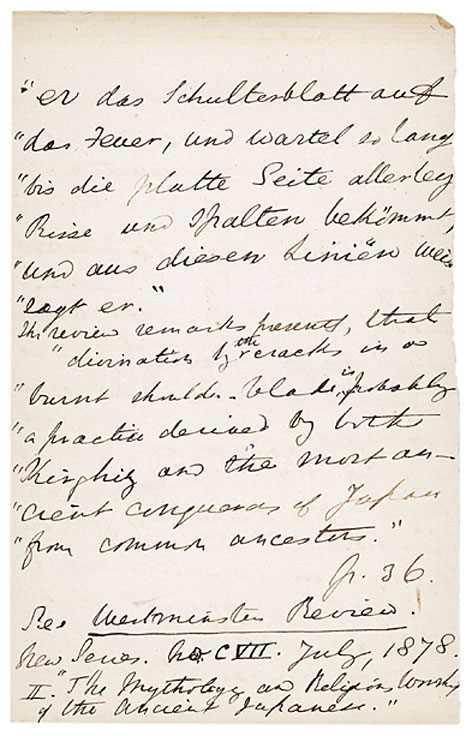 "er das Schulterblatt auf
"das Feuer, und wartel so lang
"bis die platte Seite allerley
"Risse und Spalten bekömmt,
"und aus diesen Liniën weis
"sagt er."
The review remarks presents, that
"divination by the cracks in a
"burnt should.-blade is probably
"a practice derived by both
"Kirghiz and the most an-
"cient conquerors of Japan
"from common ancestors."
p. 36.
See Westminster Review.
New Series. No. CVII. July, 1878.
II. "The Mythology and Religious Worship
of the Ancient Japanese."